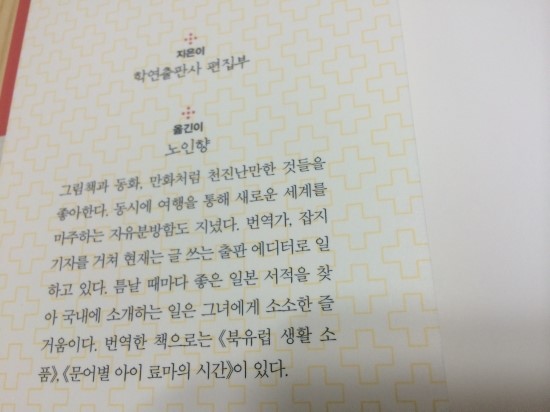 지은이
학연출판사 편집부
옮긴이
노인향
그림책과 동화, 만화처럼 천진난만한 것들을
좋아한다. 동시에 여행을 통해 새로운 세계를
마주하는 자유분방함도 지녔다. 번역가, 잡지
기자를 거쳐 현재는 글 쓰는 출판 에디터로 일
하고 있다. 틈날 때마다 좋은 일본 서적을 찾
아 국내에 소개하는 일은 그녀에게 소소한 즐
거움이다. 번역한 책으로는 《북유럽 생활 소
품》, 《문어별 아이 료마의 시간》이 있다.